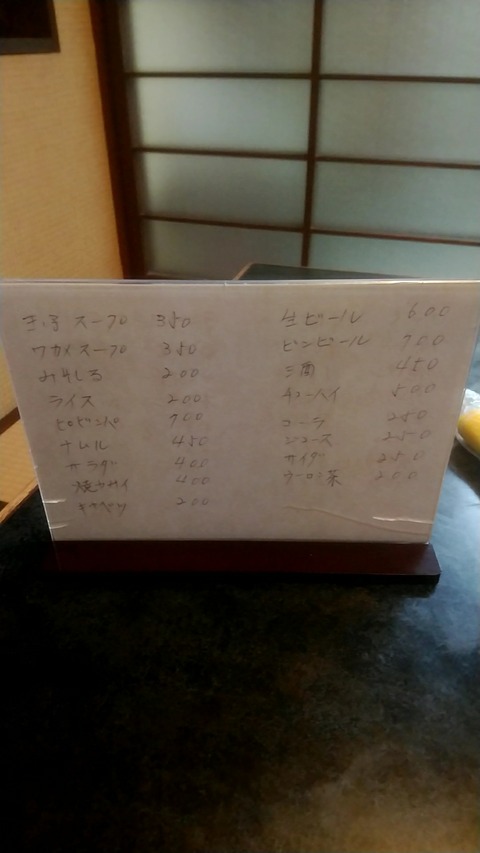 玉子スープ 350
ワカメスープ 350
みそしる 200
ライス 200
ビビンバ 700
ナムル 450
サラダ 400
焼ヤサイ 400
キャベツ 200
生ビール 600
ビンビール 700
酒 450
チューハイ 500
コーラ 250
ジュース 250
サイダ 250
ウーロン茶 200